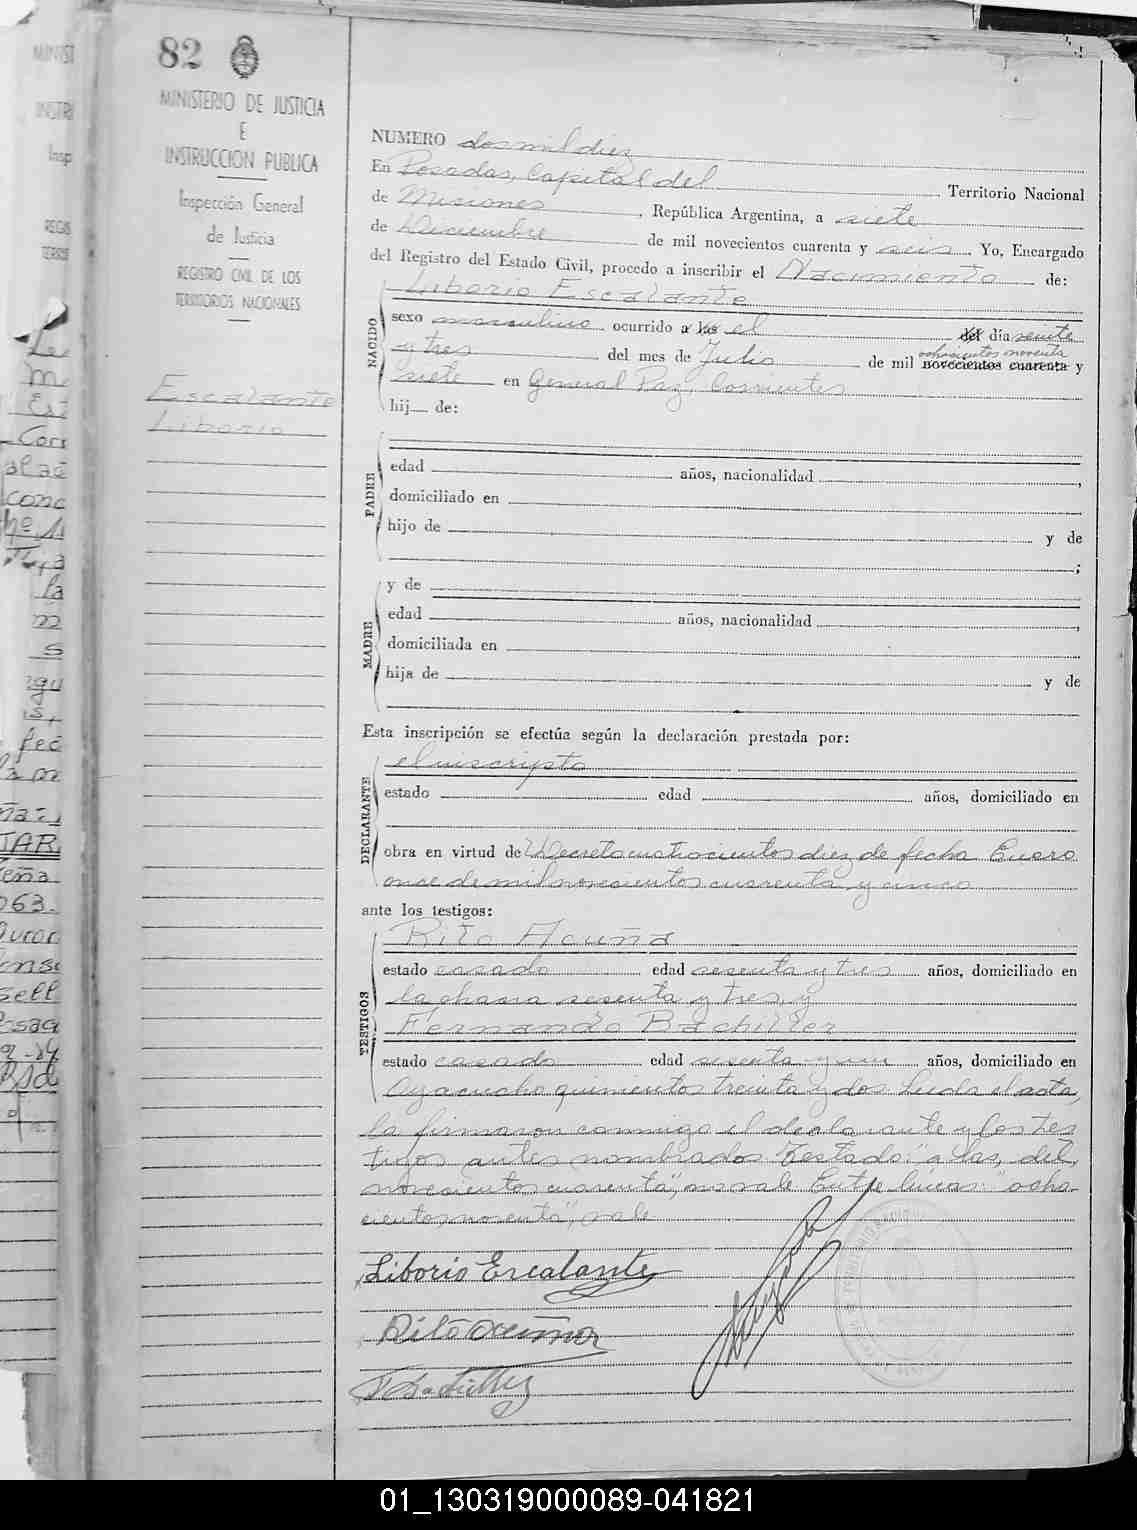 82
MINISTERIO DE JUSTICIA
E
INSTRUCCION PUBLICA
Inspección General
de Justicia
REGISTRO CIVIL DE LOS
TERRITORIOS NACIONALES
Escalante
Liborio
NUMERO dos mil diez
En Posadas, Capital del Territorio Nacional
de Misiones, República Argentina, a siete
de Diciembre de mil novecientos cuarenta y seis. Yo, Encargado
del Registro del Estado Civil, procedo a inscribir el Nacimiento de:
Liborio Escalante
NACIDO
sexo masculino ocurrido a las el del día veinte
ochocientos noventa
y tres del mes de Julio de mil novecientos cuarenta y
siete en General Paz, Corrientes
hij de:
PADRE
edad años, nacionalidad ,
domiciliado en
hijo de y de
;
MADRE
y de
edad años, nacionalidad ,
domiciliada en
hija de y de
Esta inscripción se efectúa según la declaración prestada por:
DECLARANTE
el inscripto
estado edad años, domiciliado en
obra en virtud de Decreto cuatrocientos diez de fecha Enero
once de mil novecientos cuarenta y cinco
ante los testigos:
TESTIGOS
Rito Acuña
estado casado edad sesenta y tres años, domiciliado en
la chacra sesenta y tres, y
Fernando Bachiller
estado casado edad sesenta y un años, domiciliado en
Ayacucho quinientos treinta y dos. Leida el acta,
la firmaron conmigo el declarante y los tes
tigos antes nombrados. Testado: "a las, del,
novecientos cuarenta", no vale. Entre lineas: "ocho
cientos noventa", vale
Liborio Escalante
Rito Acuña
F Bachiller
01_130319000089-041821